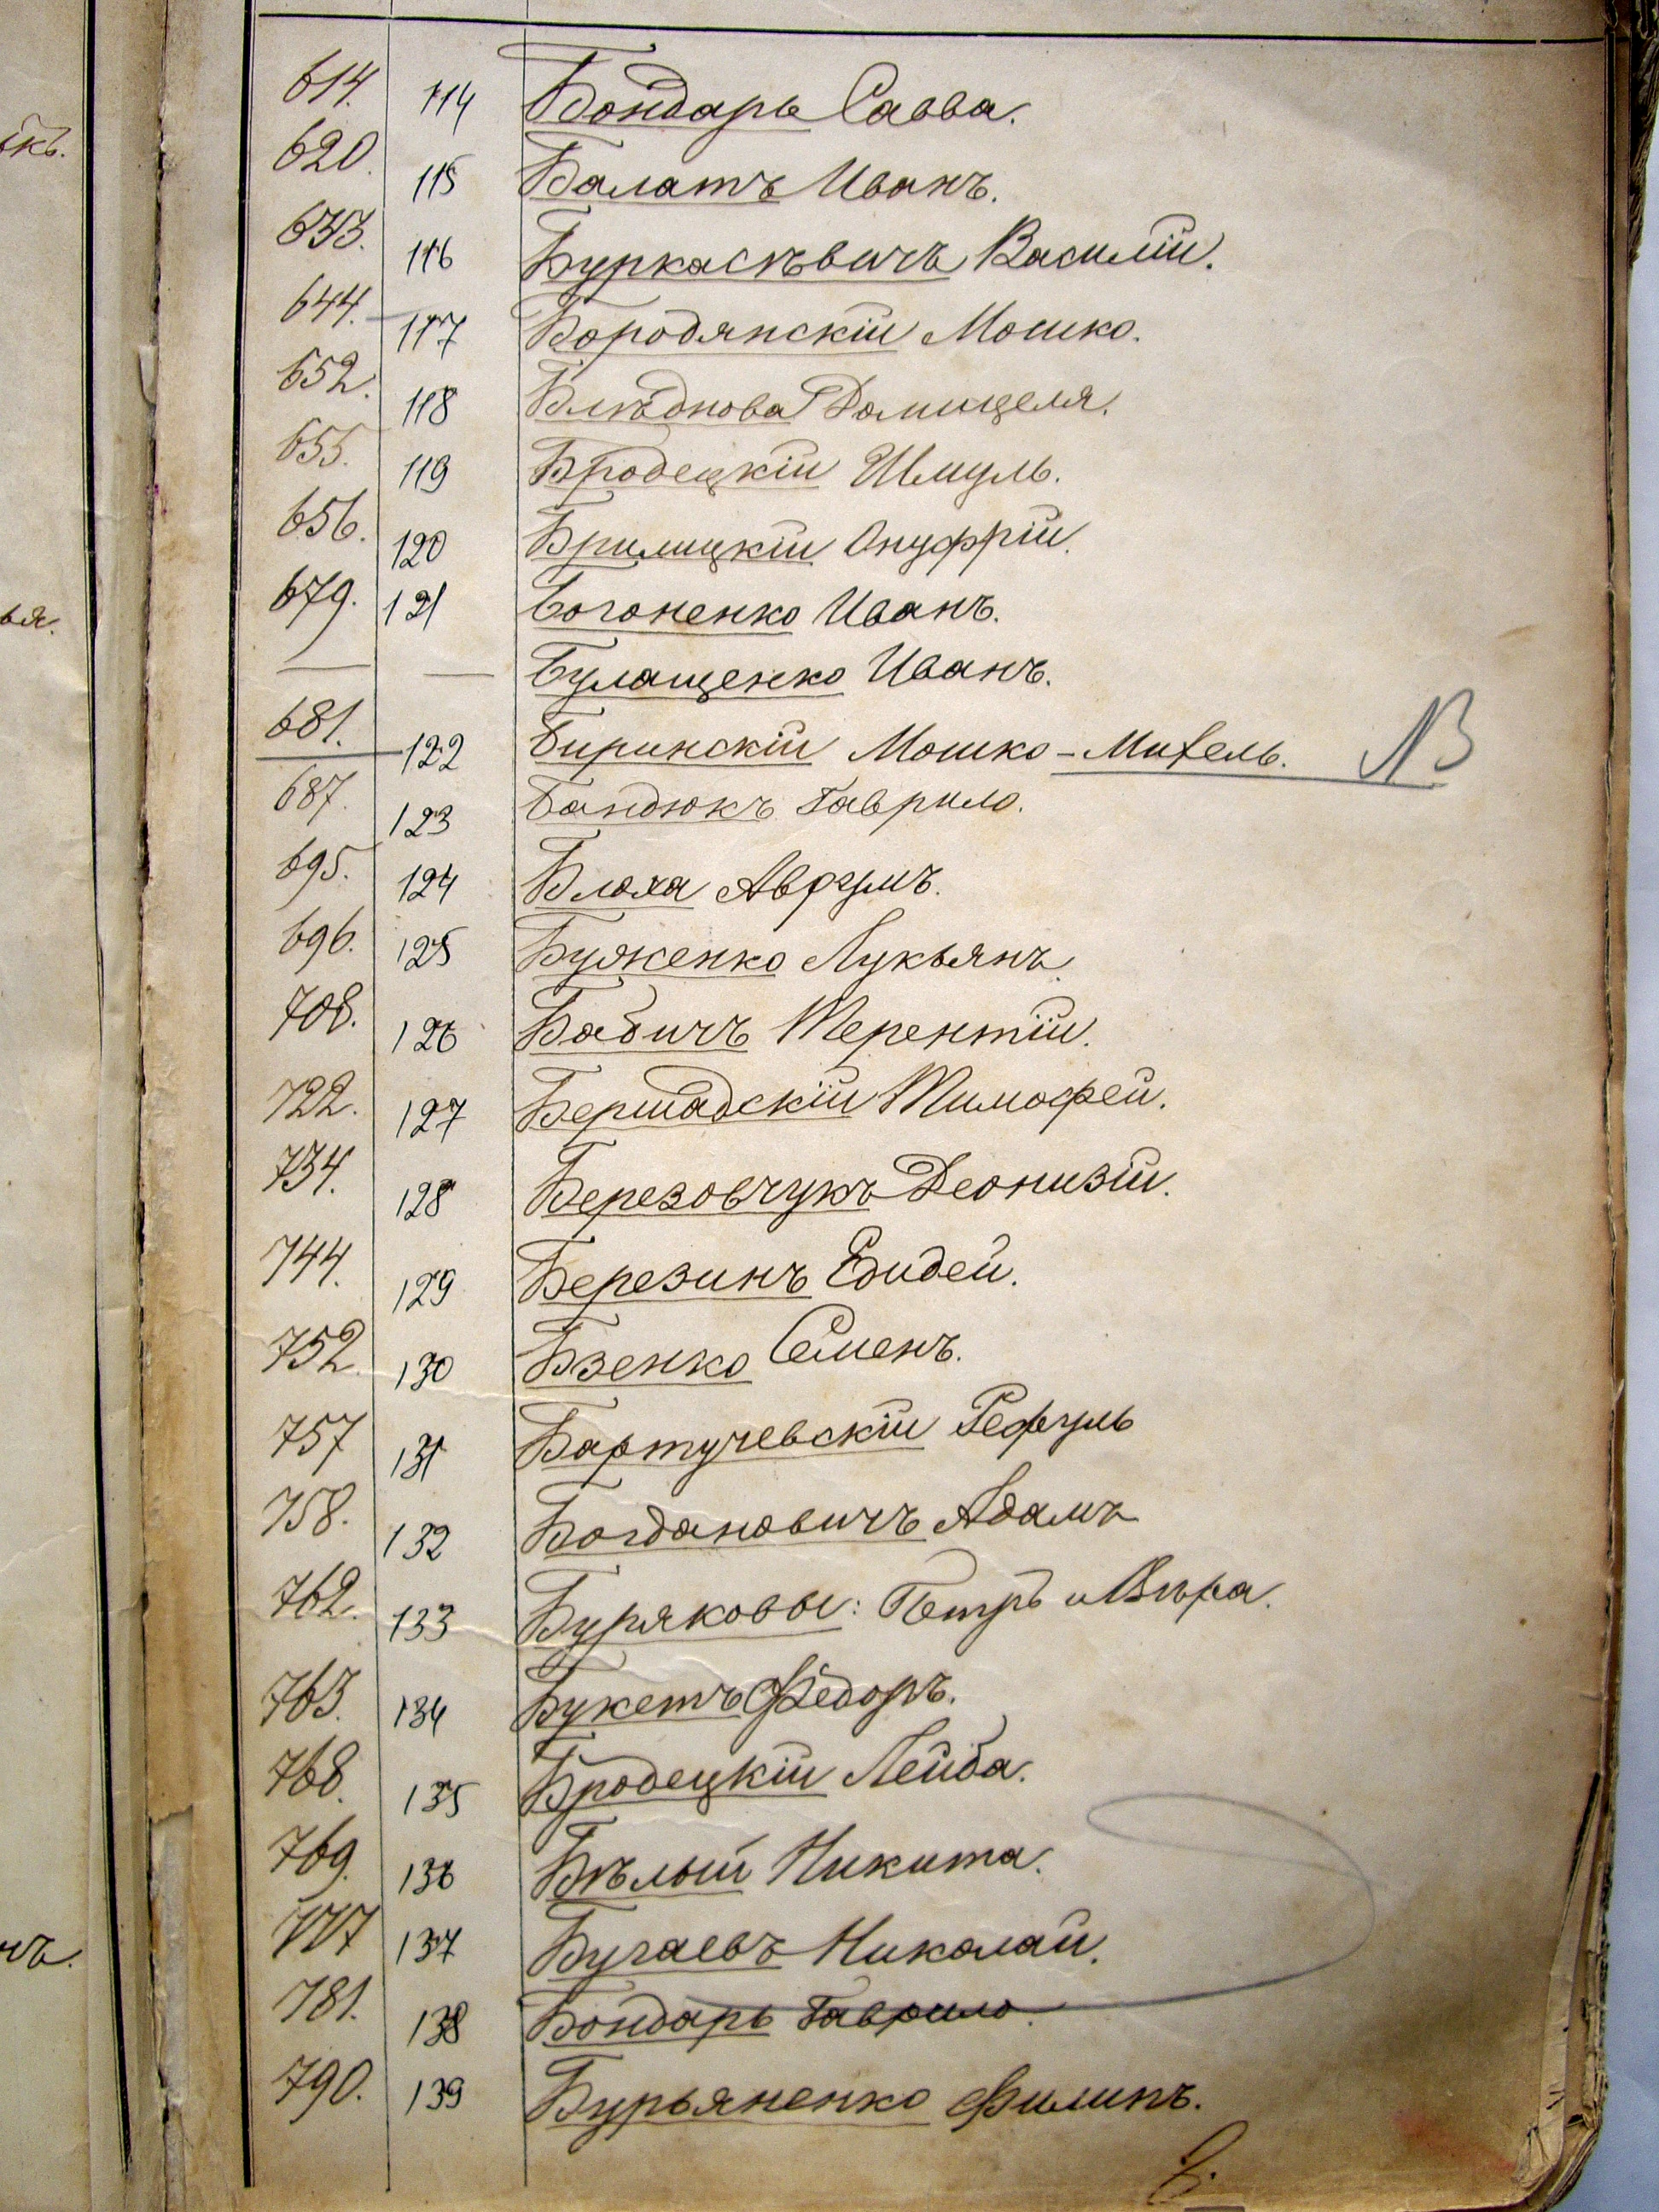 ікъ.
614. 114 Бондарь Савва.
620. 115 Балатъ Иванъ.
633. 116 Буркаспъвичъ Василій.
644. 117 Бородянскій Мошко.
652. 118 Блѣднова Домицеля.
655. 119 Бродецкій Шмуль.
656. 120 Брилицкій Онуфрій.
679. 121 Богоненко Иванъ.
ья.
— — Булащенко Иванъ.
681. 122 Биринскій Мошко-Михель. NB
687. 123 Бандюкъ Гаврило.
695. 124 Блюха Аврумъ.
696. 125 Буженко Лукьянъ.
708. 126 Бабичъ Терентій.
722. 127 Бершадскій Тимофей.
734. 128 Березовчукъ Деонизій.
744. 129 Березинъ Едидей.
752. 130 Бзенко Семенъ.
757 131 Бартучевскій Рефуль
758. 132 Богдановичъ Адамъ
762. 133 Буряковы: Петръ и Вѣра.
763. 134 Букетъ Федоръ.
768. 135 Бродецкій Лейба.
769. 136 Бѣлый Никита.
777 137 Бугаевъ Николай.
чъ.
781. 138 Бондарь Гаврило.
790. 139 Бурьяненко Филипъ.